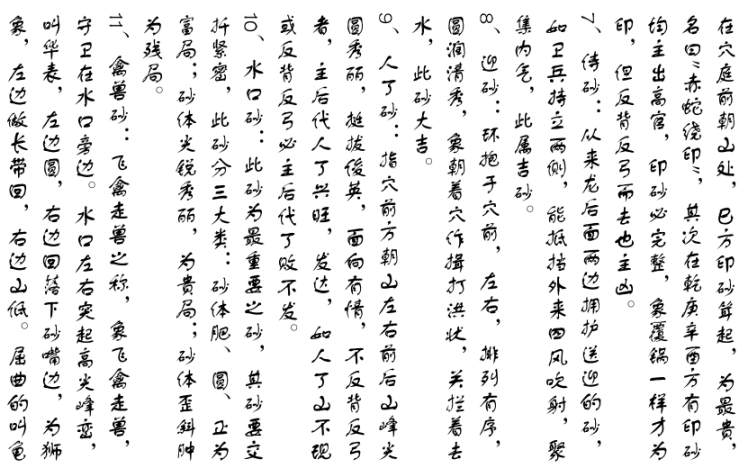 在穴庭前朝山处，巳方印砂耸起，为最贵，
名曰“赤蛇绕印”，其次在乾庚辛酉方有印砂
均主出高官，印砂必完整，象覆锅一样才为
印，但反背反弓而去也主凶。
7、侍砂：从来龙后面两边拥护送迎的砂，
如卫兵持立两侧，能抵挡外来四风吹射，聚
集内气，此属吉砂。
8、迎砂：环抱于穴前，左右，排列有序，
圆润清秀，象朝着穴作揖打洪状，关拦着去
水，此砂大吉。
9、人丁砂：指穴前方朝山左右前后山峰尖
圆秀丽，挺拔俊英，面向有情，不反背反弓
者，主后代人丁兴旺，发达，如人丁山不现
或反背反弓必主后代丁败不发。
10、水口砂：此砂为最重要之砂，其砂要交
扦紧密，此砂分三大类：砂体肥、圆、正为
富局；砂体尖锐秀丽，为贵局；砂体歪斜肿
为残局。
11、禽兽砂：飞禽走兽之称，象飞禽走兽，
守卫在水口旁边。水口左右突起高尖峰峦，
叫华表，左边圆，右边回落下砂嘴边，为狮
象，左边做长带回，右边山低。屈曲的叫龟